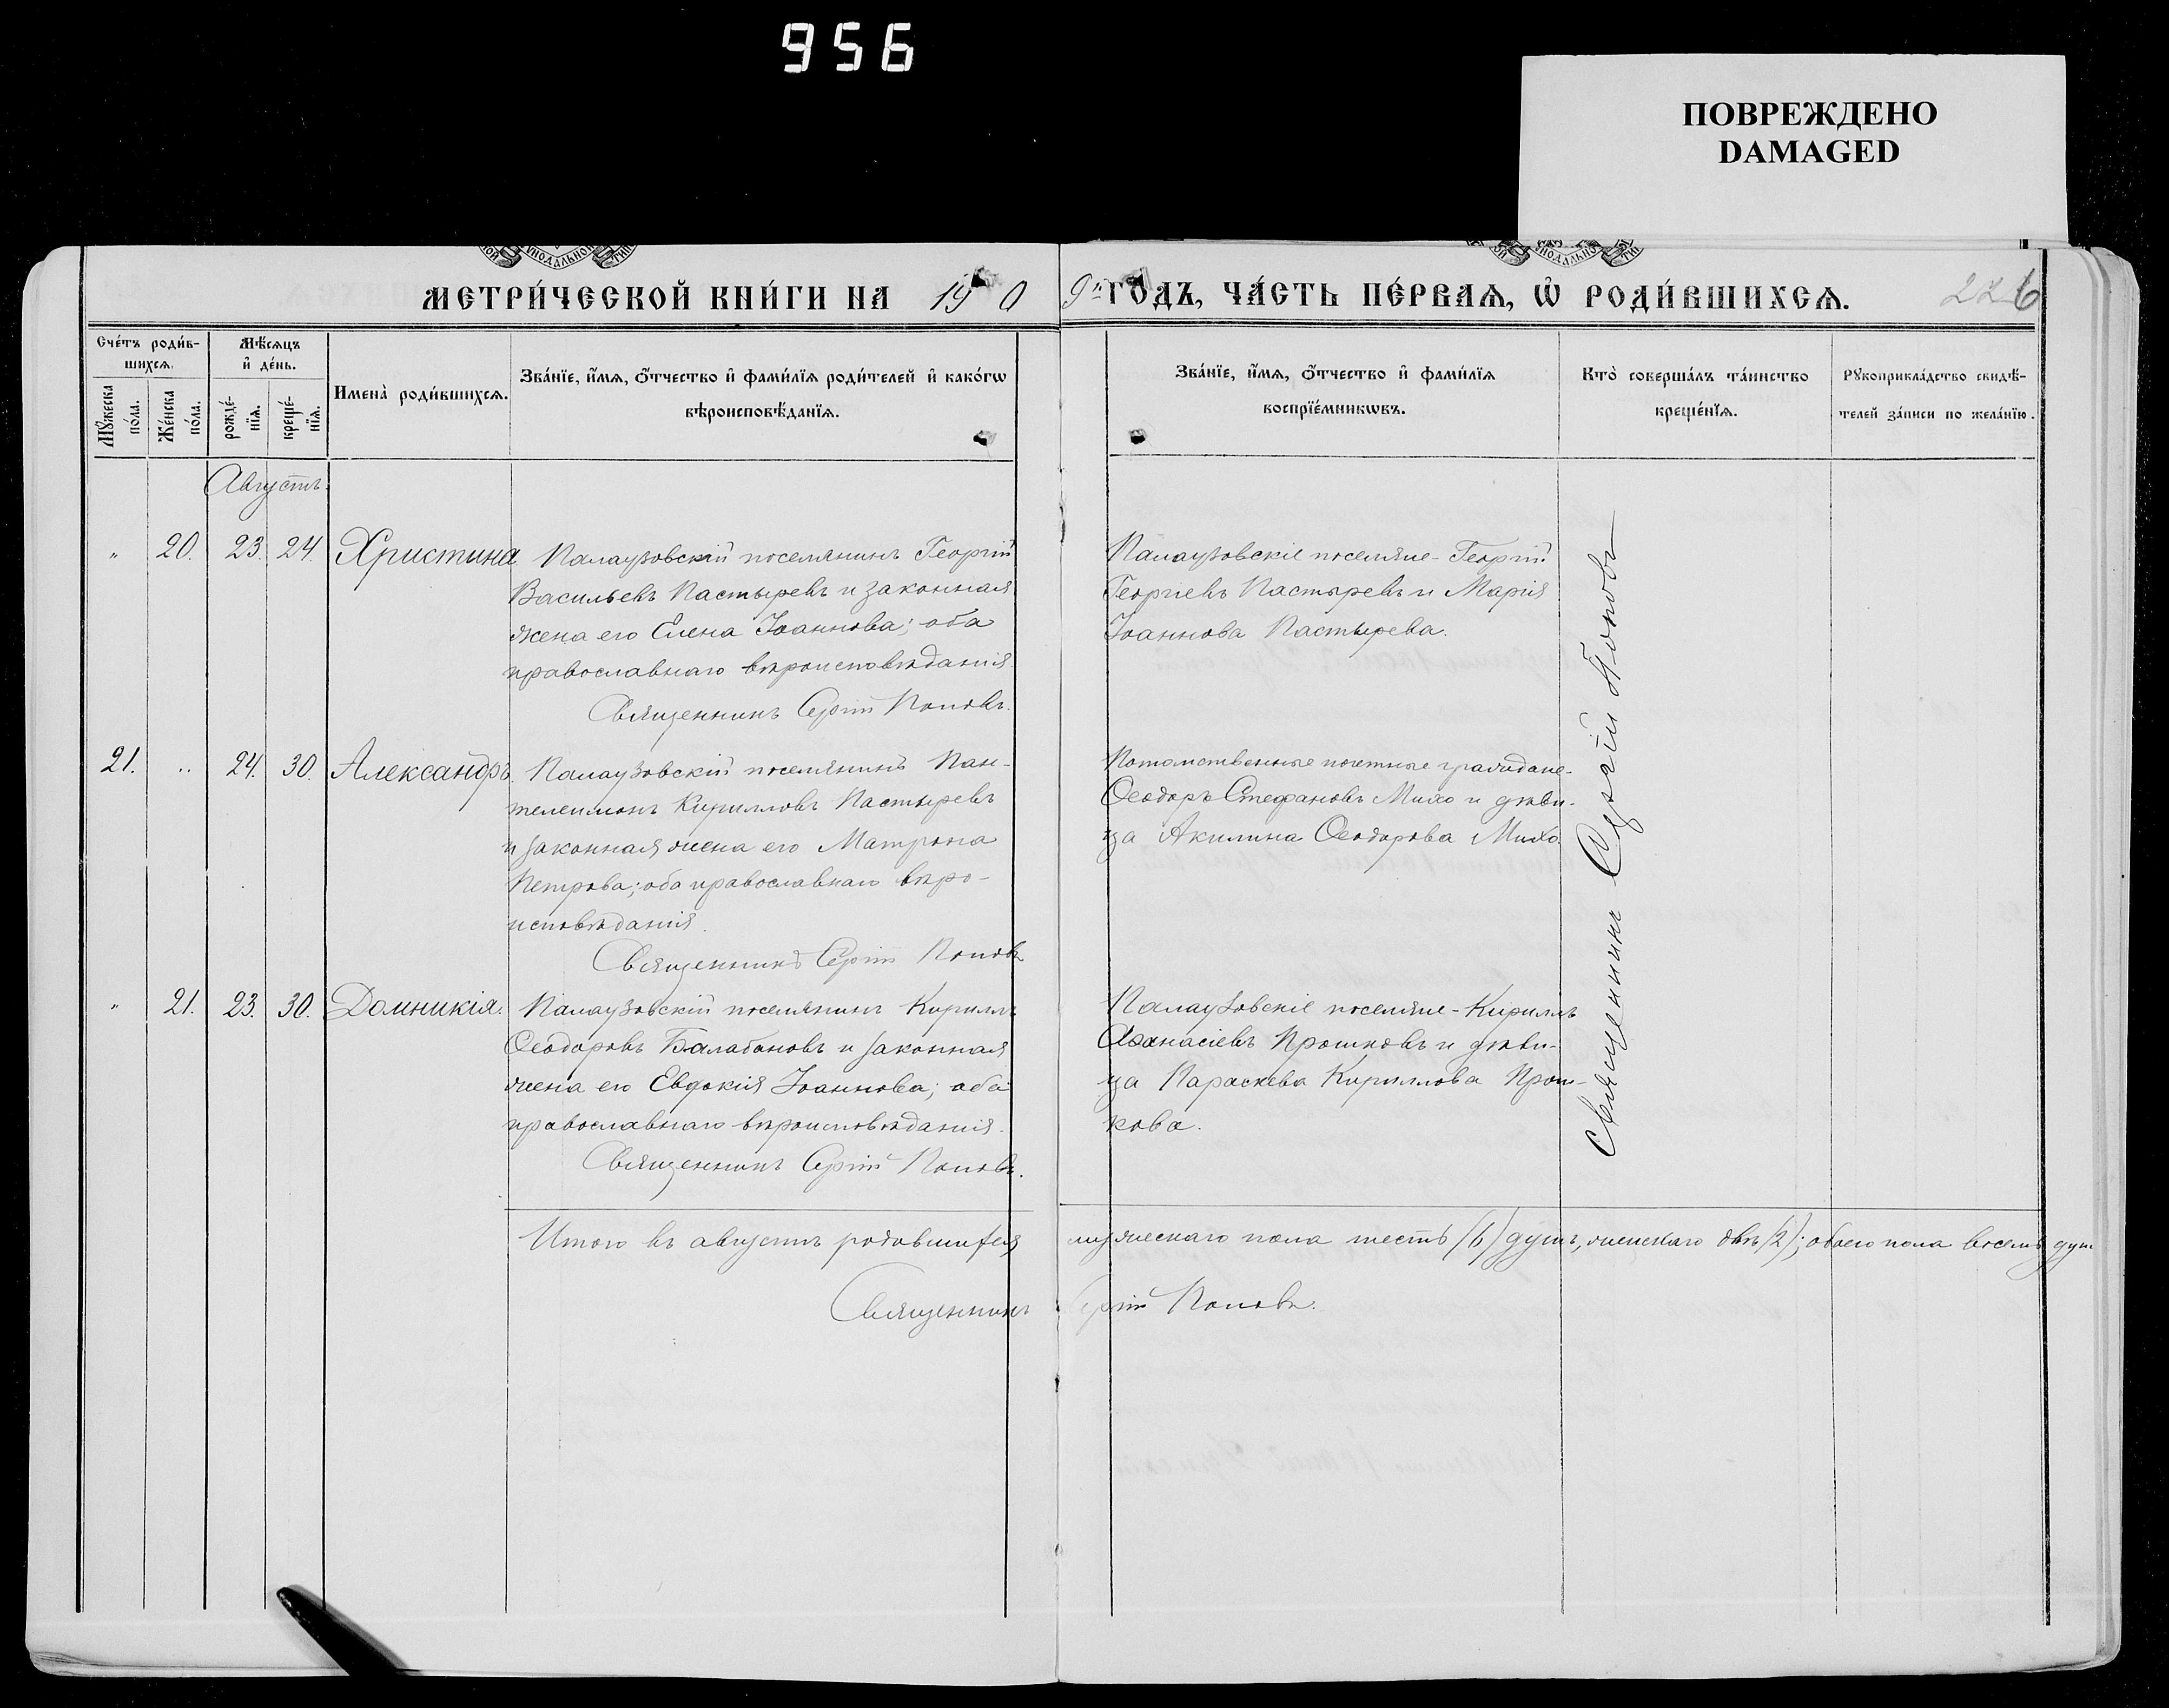 956
ПОВРЕЖДЕНО
DAMAGED
МЕТРИ́ЧЕСКОЙ КНИ́ГИ НА 190 9й ГО́ДЪ, ЧА́СТЬ ПЕ́РВАѦ, Ѡ РОДИ́ВШИХСѦ.
226
Сче́тъ роди́в-
шихсѧ.
Мѣ́сѧцъ
и҆ де́нь.
Мꙋ́жеска по́ла.
Же́нска по́ла.
рожде́-
нїѧ.
креще́-
нїѧ.
Имена̀ роди́вшихсѧ.
Зва́нїе, и҆́мѧ, ѻ҆́тчество и҆ фами́лїѧ роди́телей и҆ како́гѡ
вѣроисповѣ́данїѧ.
Зва́нїе, и҆́мѧ, ѻ҆́тчество и҆ фами́лїѧ
воспрїе́мникѡвъ.
Кто̀ соверша́лъ та́инство
креще́нїѧ.
Рꙋкоприкла́дство свидѣ́-
телей за́писи по жела́нїю.
Августъ.
" 20. 23. 24. Христина.
Палаузовскій поселянинъ Георгій
Васильевъ Пастыревъ и законная
жена его Елена Іоаннова; оба
православнаго вѣроисповѣданія.
Священникъ Сергій Поповъ.
Палаузовскіе поселяне - Георгій
Георгіевъ Пастыревъ и Марія
Іоаннова Пастырева.
Священникъ Сергій Поповъ
21. " 24. 30. Александръ.
Палаузовскій поселянинъ Пан-
телеимонъ Кирилловъ Пастыревъ
и законная жена его Матрона
Петрова; оба православнаго вѣро-
исповѣданія.
Священникъ Сергій Поповъ
Потомственные почетные граждане -
Ѳеодоръ Стефановъ Михо и дѣви-
ца Акилина Ѳеодорова Михо.
" 21. 23. 30. Домникія.
Палаузовскій поселянинъ Кириллъ
Ѳеодоровъ Балабановъ и законная
жена его Евдокія Іоаннова; оба
православнаго вѣроисповѣданія.
Священникъ Сергій Поповъ.
Палаузовскіе поселяне - Кириллъ
Аѳанасіевъ Прошковъ и дѣви-
ца Параскева Кириллова Прош-
кова.
Итого въ августѣ родившихся мужескаго пола шесть (6) душъ, женскаго двѣ (2); обоего пола восемь душ
Священникъ Сергій Поповъ.